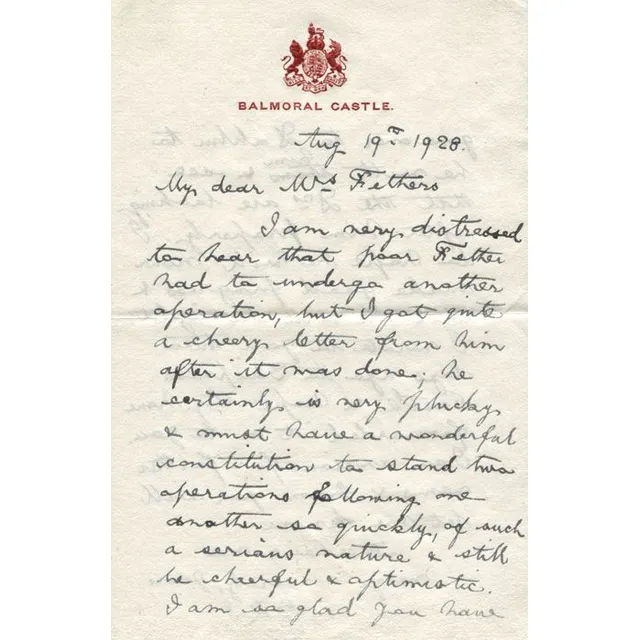 BALMORAL CASTLE.
Aug 19th 1928.
My dear Mrs Fethers
I am very distressed
to hear that poor Fether
had to undergo another
operation, but I got quite
a cheery letter from him
after it was done; he
certainly is very plucky
& must have a wonderful
constitution to stand two
operations following one
another so quickly, of such
a serious nature & still
be cheerful & optimistic.
I am so glad you have